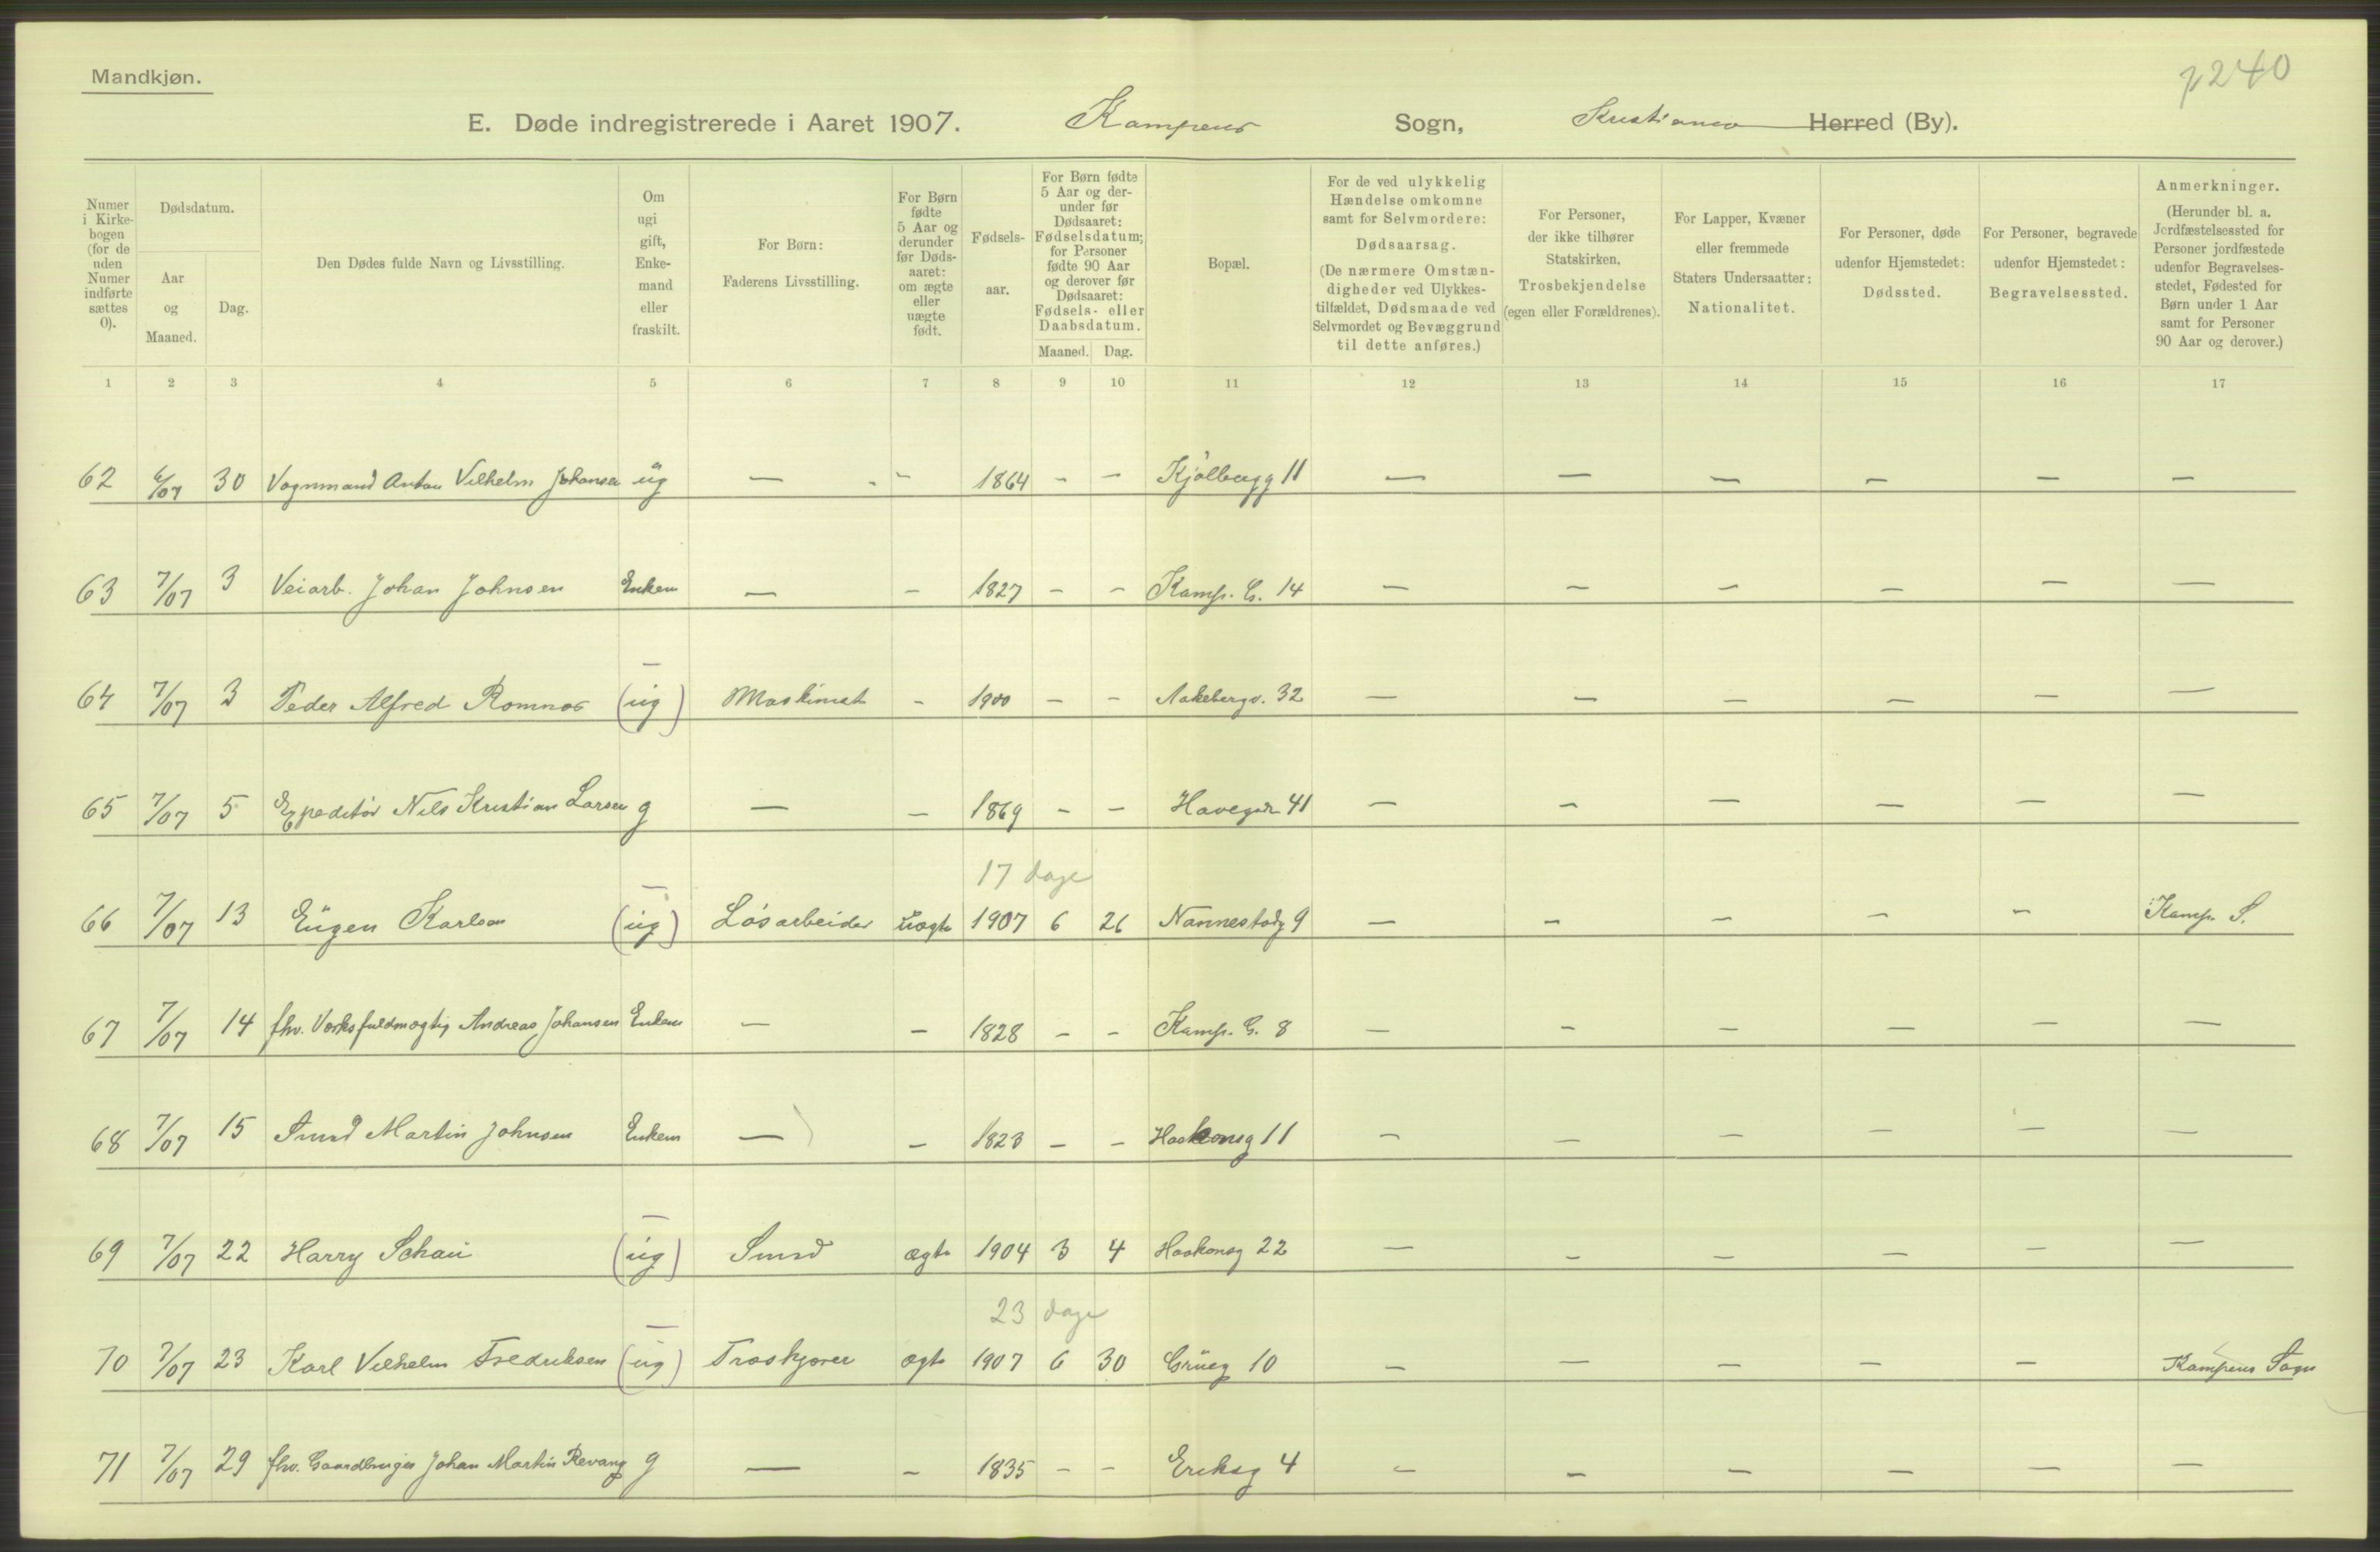 Mandkjøn.
p 240
E. Døde indregistrerede i Aaret 1907. Kampens Sogn, Kristiania Herred (By).
Numer i Kirkebogen (for de uden Numer indførte sættes 0).
Dødsdatum.
Aar og Maaned.
Dag.
Den Dødes fulde Navn og Livsstilling.
Om ugi gift, Enkemand eller fraskilt.
For Børn: Faderens Livsstilling.
For Børn fødte 5 Aar og derunder før Dødsaaret: om ægte eller uægte født.
Fødselsaar.
For Børn fødte 5 Aar og derunder før Dødsaaret: Fødselsdatum; for Personer fødte 90 Aar og derover før Dødsaaret: Fødsels- eller Daabsdatum.
Maaned. Dag.
Bopæl.
For de ved ulykkelig Hændelse omkomne samt for Selvmordere: Dødsaarsag. (De nærmere Omstændigheder ved Ulykkestilfældet, Dødsmaade ved Selvmordet og Bevæggrund til dette anføres.)
For Personer, der ikke tilhører Statskirken, Trosbekjendelse (egen eller Forældrenes).
For Lapper, Kvæner eller fremmede Staters Undersaatter: Nationalitet.
For Personer, døde udenfor Hjemstedet: Dødssted.
For Personer, begravede udenfor Hjemstedet: Begravelsessted.
Anmerkninger. (Herunder bl. a. Jordfæstelsessted for Personer jordfæstede udenfor Begravelsesstedet, Fødested for Børn under 1 Aar samt for Personer 90 Aar og derover.)
1 2 3 4 5 6 7 8 9 10 11 12 13 14 15 16 17
62 6/07 30 Vognmand Anton Vilhelm Johansen ug — - 1864 - - Kjølbergg 11 — — — — — —
63 7/07 3 Veiarb. Johan Johnsen Enkem — - 1827 - - Kamp. G. 14 — — — — — —
64 7/07 3 Peder Alfred Romnos (ug) Maskinist - 1900 - - Aakebergv. 32 — — — — — —
65 7/07 5 Expeditør Nils Kristian Larsen g — - 1869 - - Havegdn 41 — — — — — —
17 dage
66 7/07 13 Eugen Karlson (ug) Løsarbeider uægte 1907 6 26 Nannestadg 9 — — — — — Kamp. S.
67 7/07 14 fhv. Verksfuldmægtig Andreas Johansen Enkem — - 1828 - - Kamp. G. 8 — — — — — —
68 7/07 15 Smed Martin Johnsen Enkem — - 1823 - - Haakonsg 11 — — — — — —
69 7/07 22 Harry Schau (ug) Smed ægte 1904 3 4 Haakonsg 22 — — — — — —
23 dage
70 7/07 23 Karl Vilhelm Fredriksen (ug) Traskjører ægte 1907 6 30 Grueg 10 — — — — — Kampens Sogn
71 7/07 29 fhv. Gaardbruger Johan Martin Revang g — - 1835 - - Eriksg 4 — — — — — —